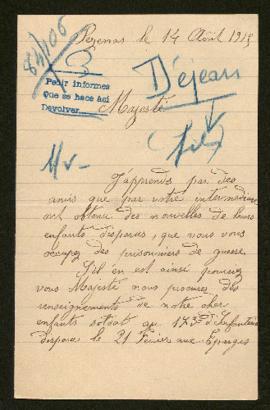 84/106
Pezenas le 14 Août 1915
Pedir informes
que se hace aci
Devolver
Déjean
Majesté
J'apprends par des
amis que par votre intermédiaire
ont obtenu des nouvelles de leurs
enfants disparus, que vous vous
occupez des prisonniers de guerre
S'il en est ainsi pouvez
vous Majesté nous procurer des
renseignements de notre cher
enfants soldat au 173e d'Infanterie
disparu le 21 Février aux Eparges